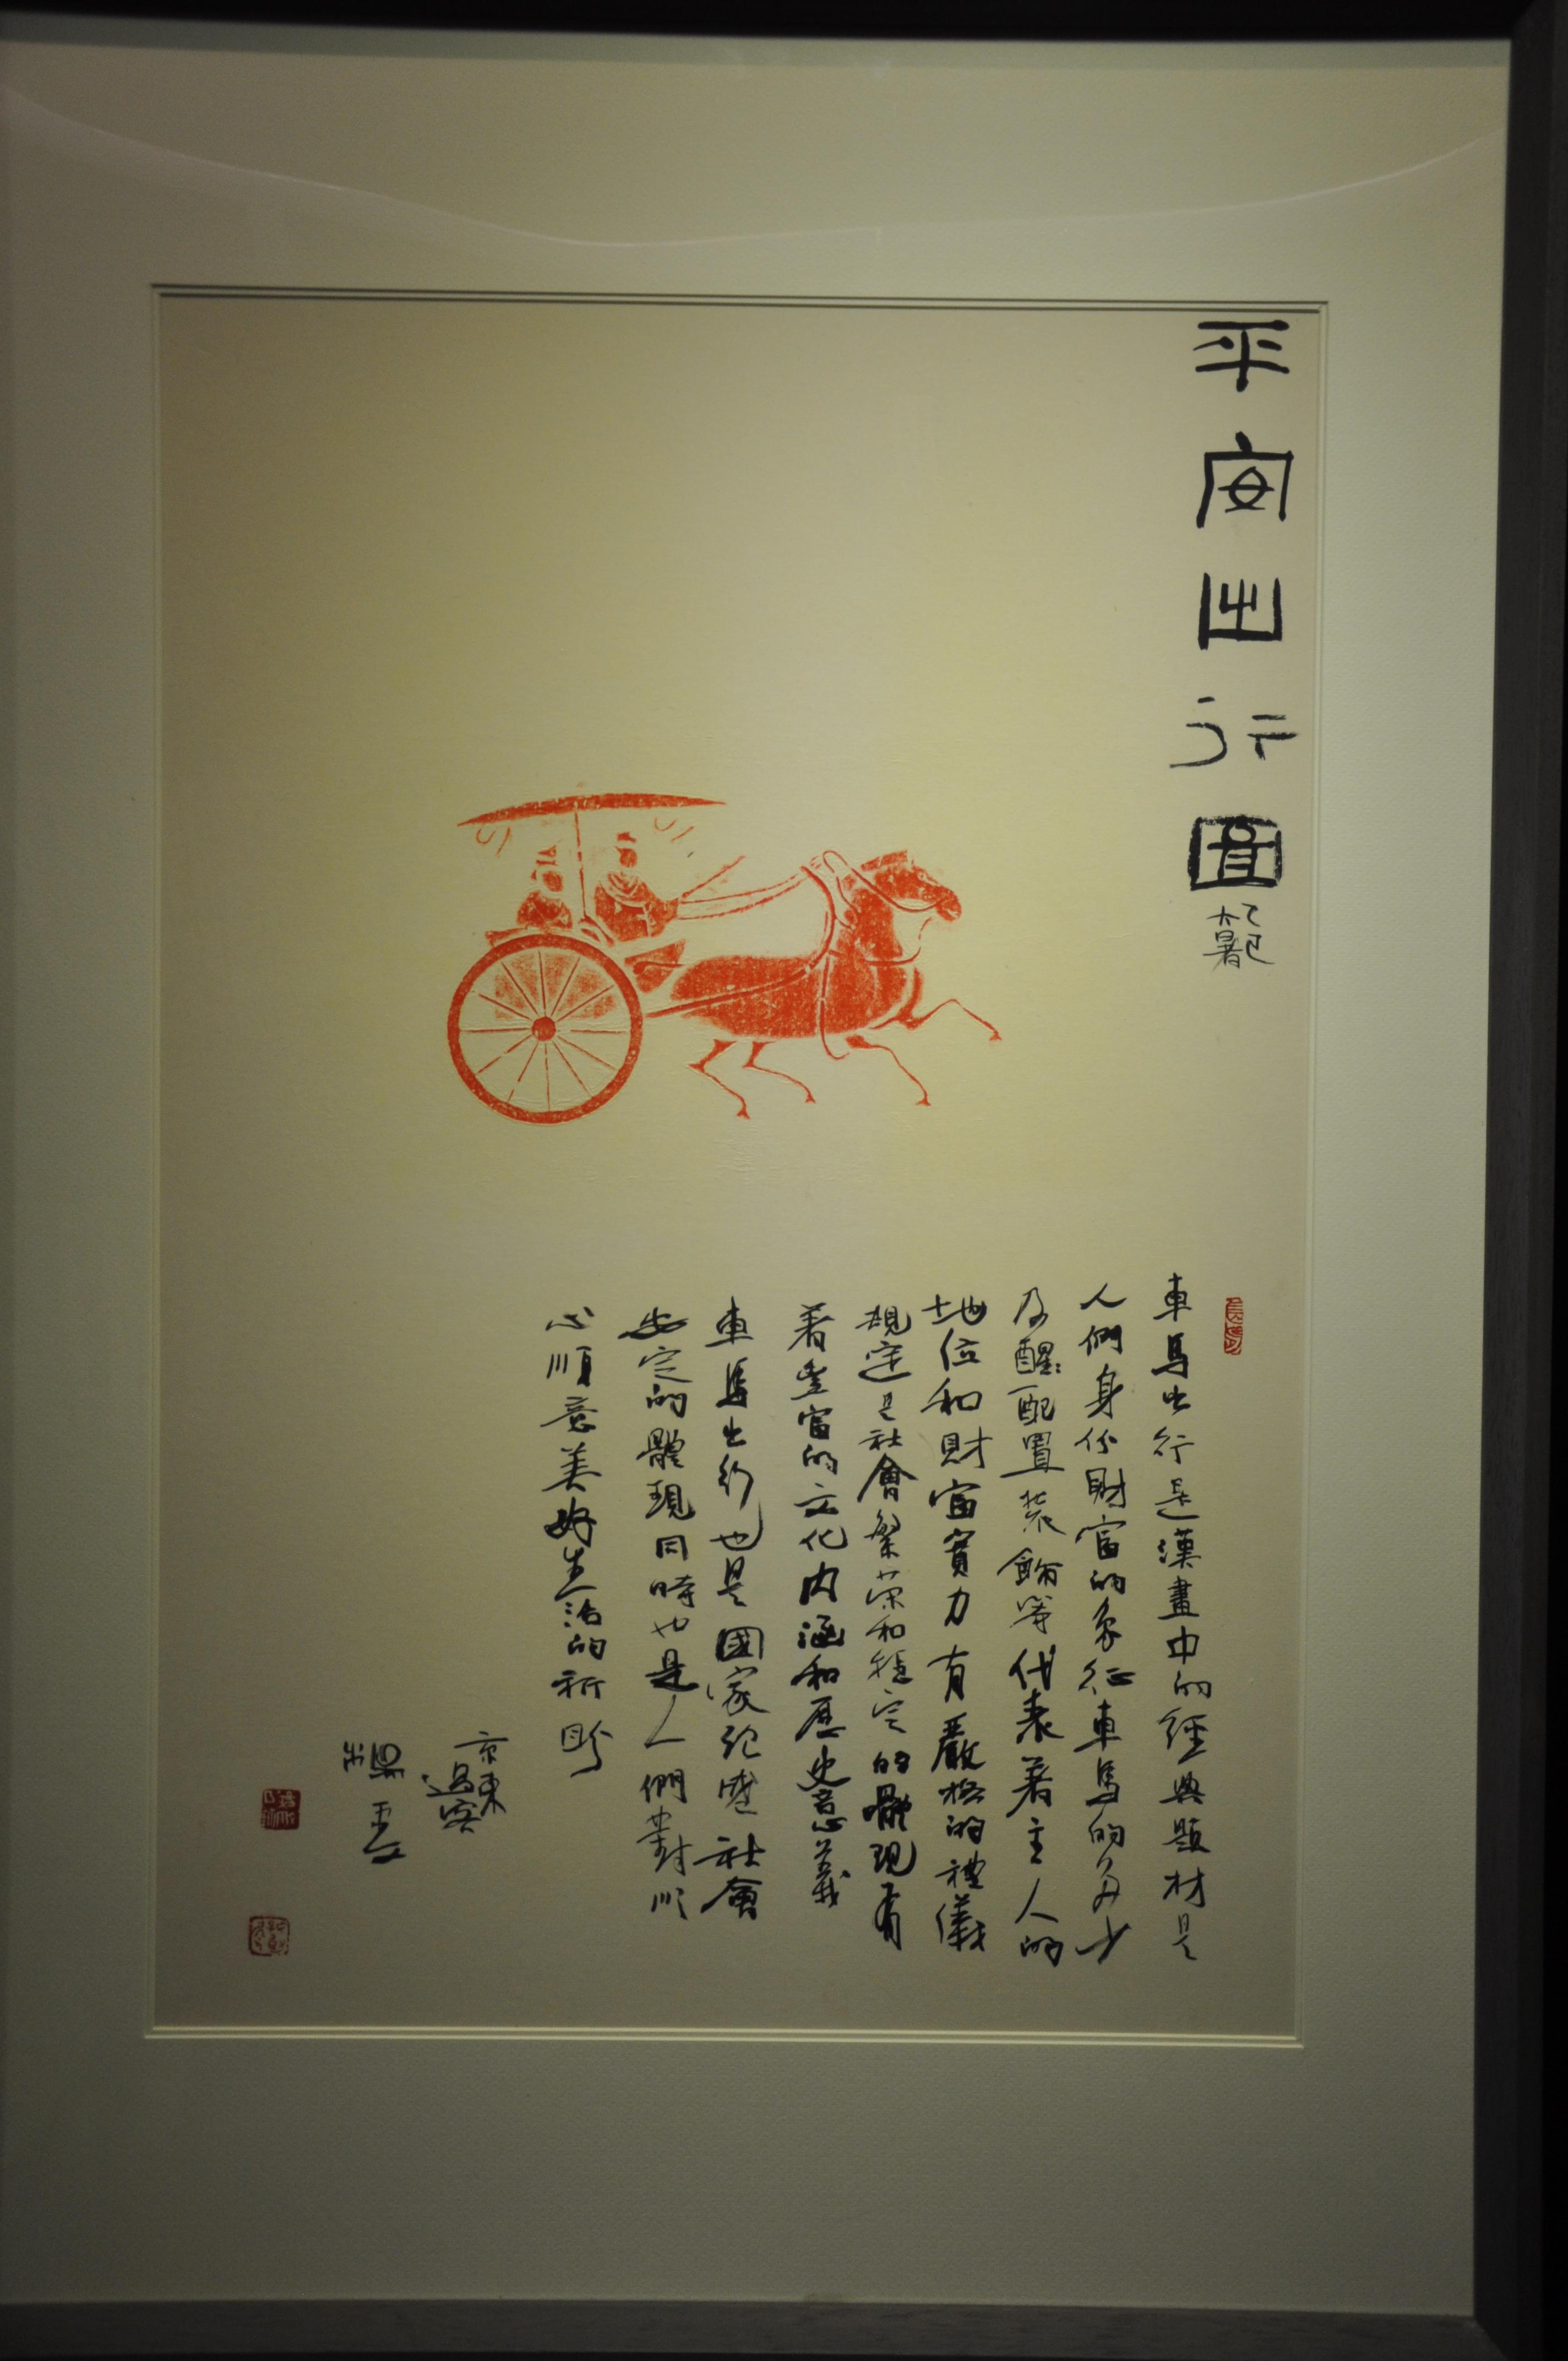 平安出行圖
車馬出行是漢畫中的經典題材是
人們身份財富的象征車馬的多少
及配置裝飾等代表著主人的
地位和財富實力有嚴格的禮儀
規定是社會繁荣和穩定的體現有
著豐富的文化内涵和歷史意義
車馬出行也是國家社會
安定的體現同時也是人們對順
心順意美好生活的祈盼
京東過客